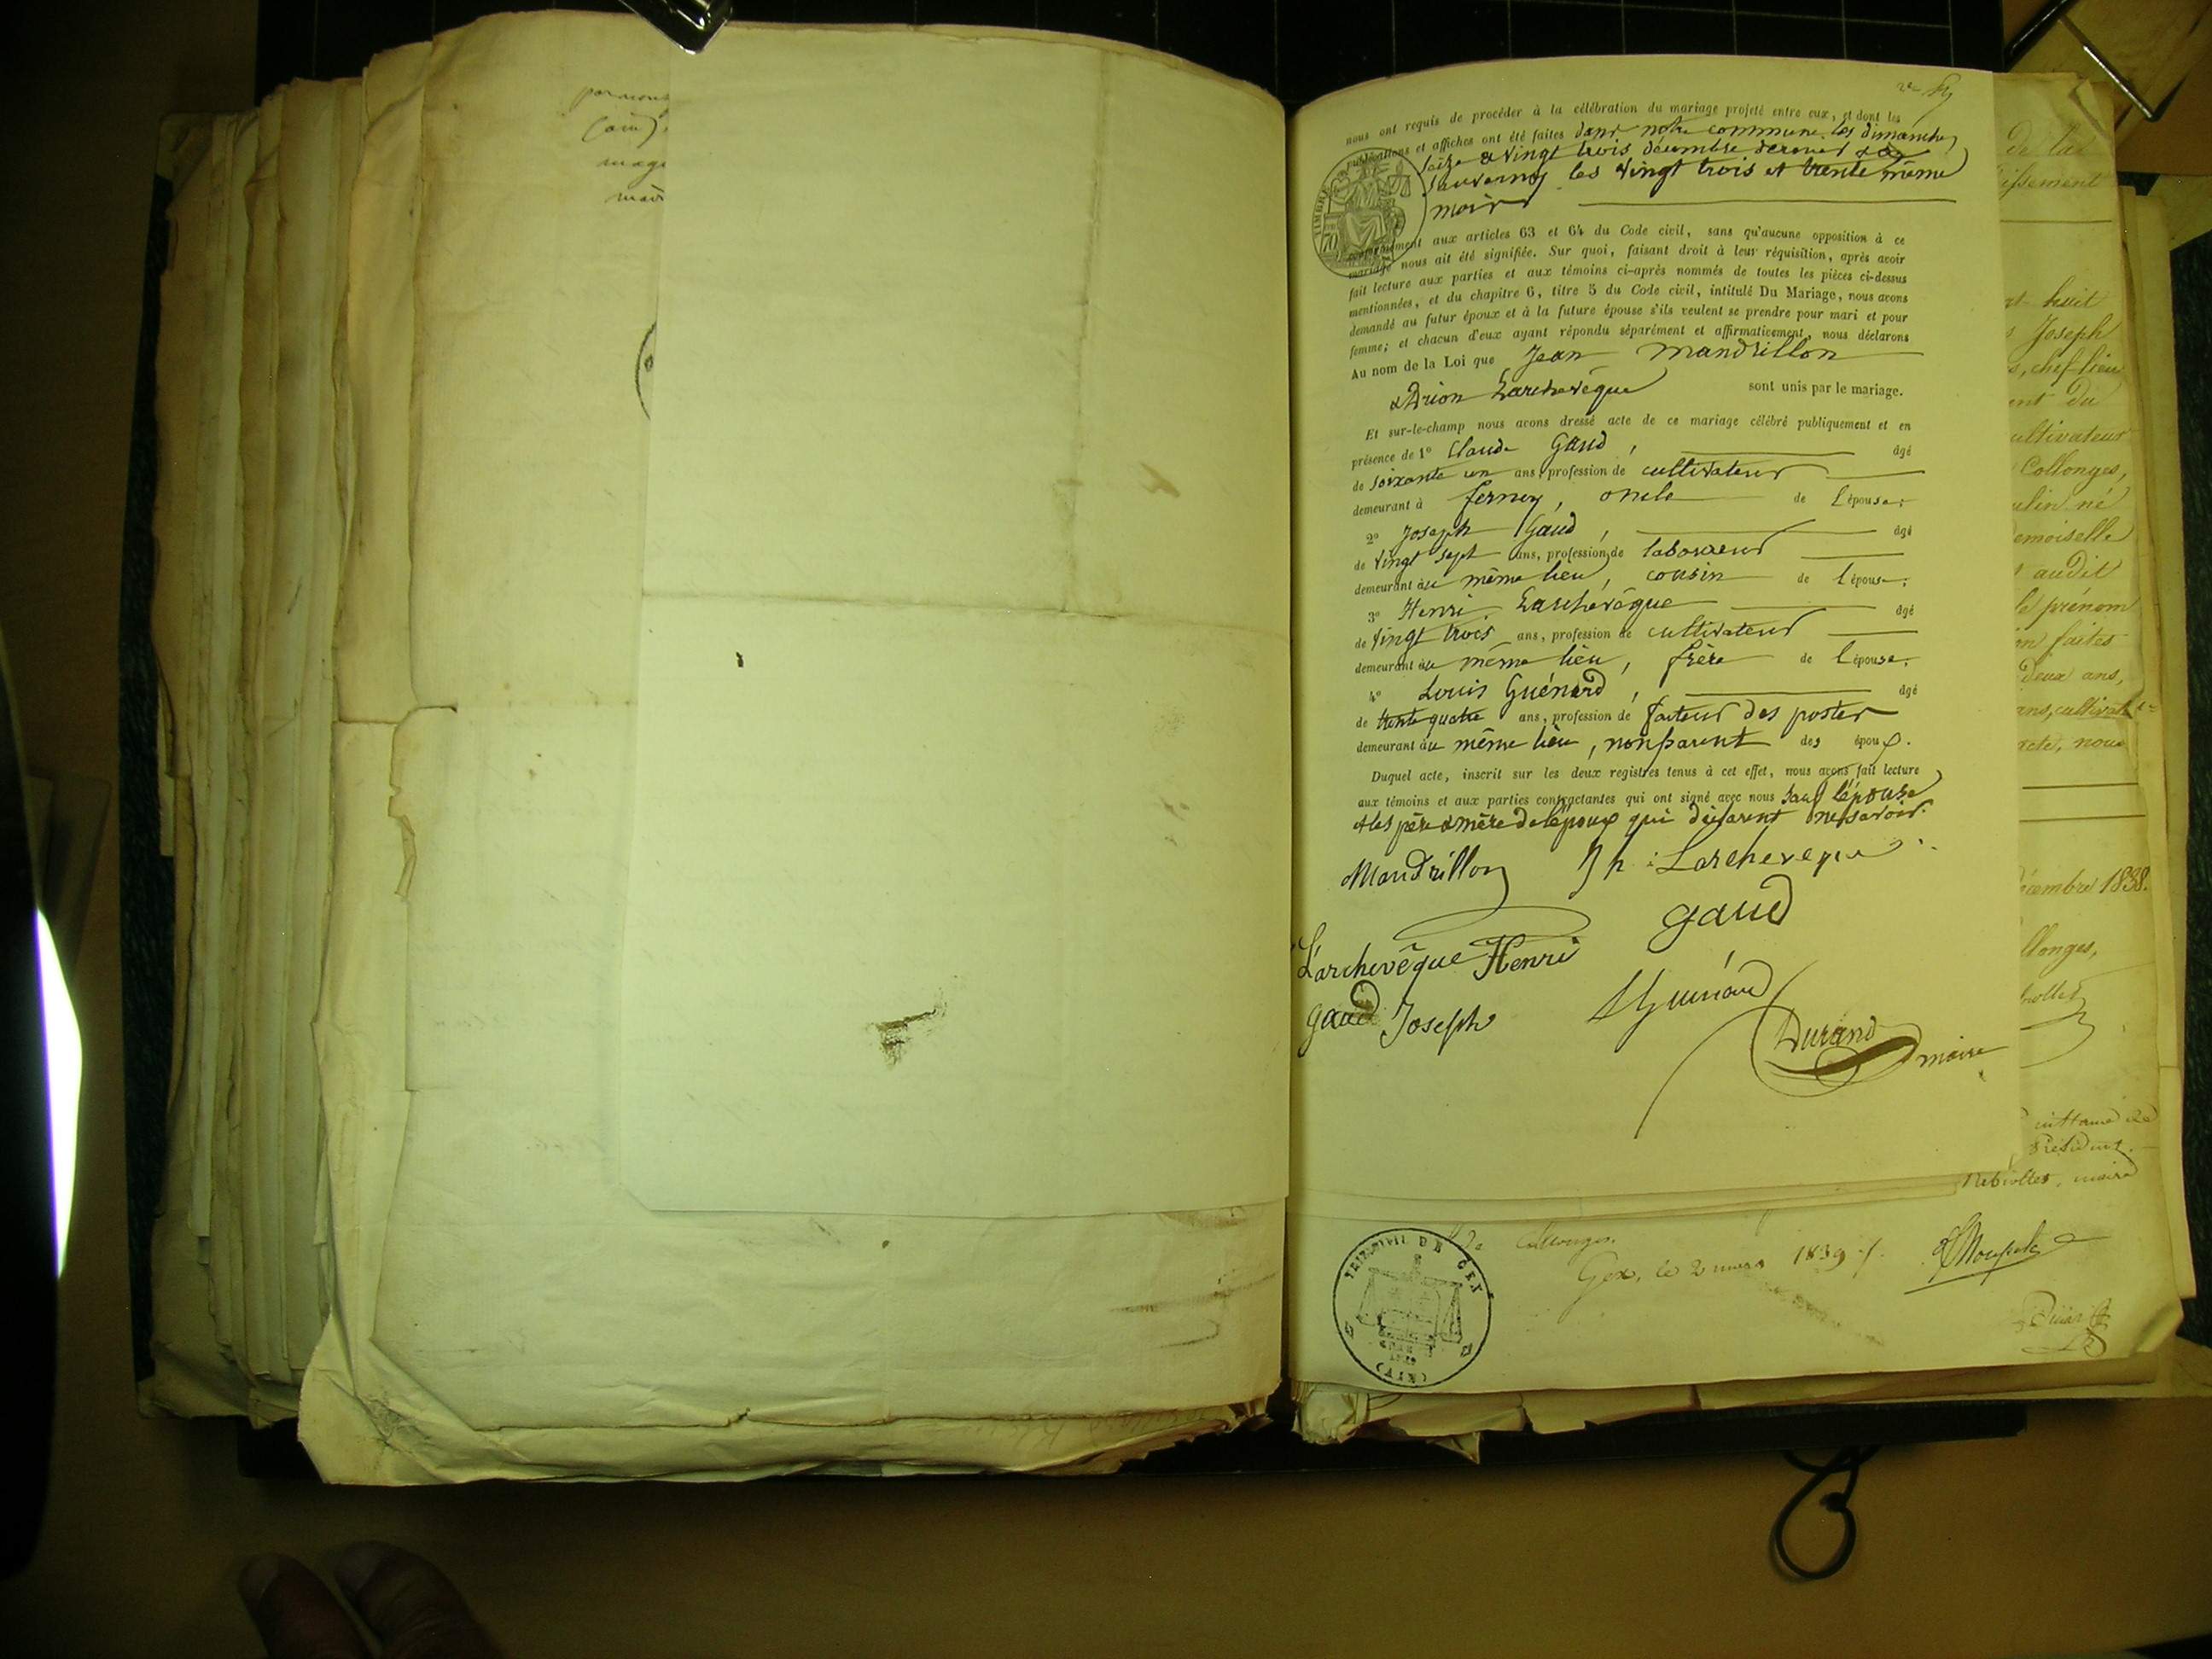 nous ont requis de procéder à la célébration du mariage projeté entre eux, et dont les
publications et affiches ont été faites dans notre commune les dimanches
seize & vingt trois décembre dernier &
Sauverny les vingt trois et trente même
mois
TIMBRE
conformément aux articles 63 et 64 du Code civil, sans qu'aucune opposition à ce
mariage nous ait été signifiée. Sur quoi, faisant droit à leur réquisition, après avoir
fait lecture aux parties et aux témoins ci-après nommés de toutes les pièces ci-dessus
mentionnées, et du chapitre 6, titre 5 du Code civil, intitulé Du Mariage, nous avons
demandé au futur époux et à la future épouse s'ils veulent se prendre pour mari et pour
femme; et chacun d'eux ayant répondu séparément et affirmativement, nous déclarons
Au nom de la Loi que Jean Mandrillon
& Larchevêque sont unis par le mariage.
Et sur-le-champ nous avons dressé acte de ce mariage célébré publiquement et en
présence de 1º Claude Gaud, âgé
de soixante un ans, profession de cultivateur
demeurant à Ferney, oncle de l'épouse;
2º Joseph Gaud, âgé
de vingt sept ans, profession de laboureur
demeurant au même lieu, cousin de l'épouse;
3º Henri Larchevêque âgé
de vingt trois ans, profession de cultivateur
demeurant au même lieu, frère de l'épouse;
4º Louis Guénard, âgé
de trente quatre ans, profession de facteur des postes
demeurant au même lieu, non parent des époux.
Duquel acte, inscrit sur les deux registres tenus à cet effet, nous avons fait lecture
aux témoins et aux parties contractantes qui ont signé avec nous sauf l'épouse
& les père & mère de l'époux qui déclarent ne savoir.
Mandrillon Jh : Larcheveque
gaud
Larchevêque Henri
gaud Joseph LGuénard
Durand maire
de la
issement
huit
Joseph
, chef lieu
ent du
ultivateur
Collonges,
ulin né
emoiselle
audit
le prénom
on faites
deux ans,
ans, cultivat
acte, nous
décembre 1838.
llonges,
Président.
maire
de Collonges.
Gex, le 2 mars 1839 ./.
TRIBUNAL DE GEX